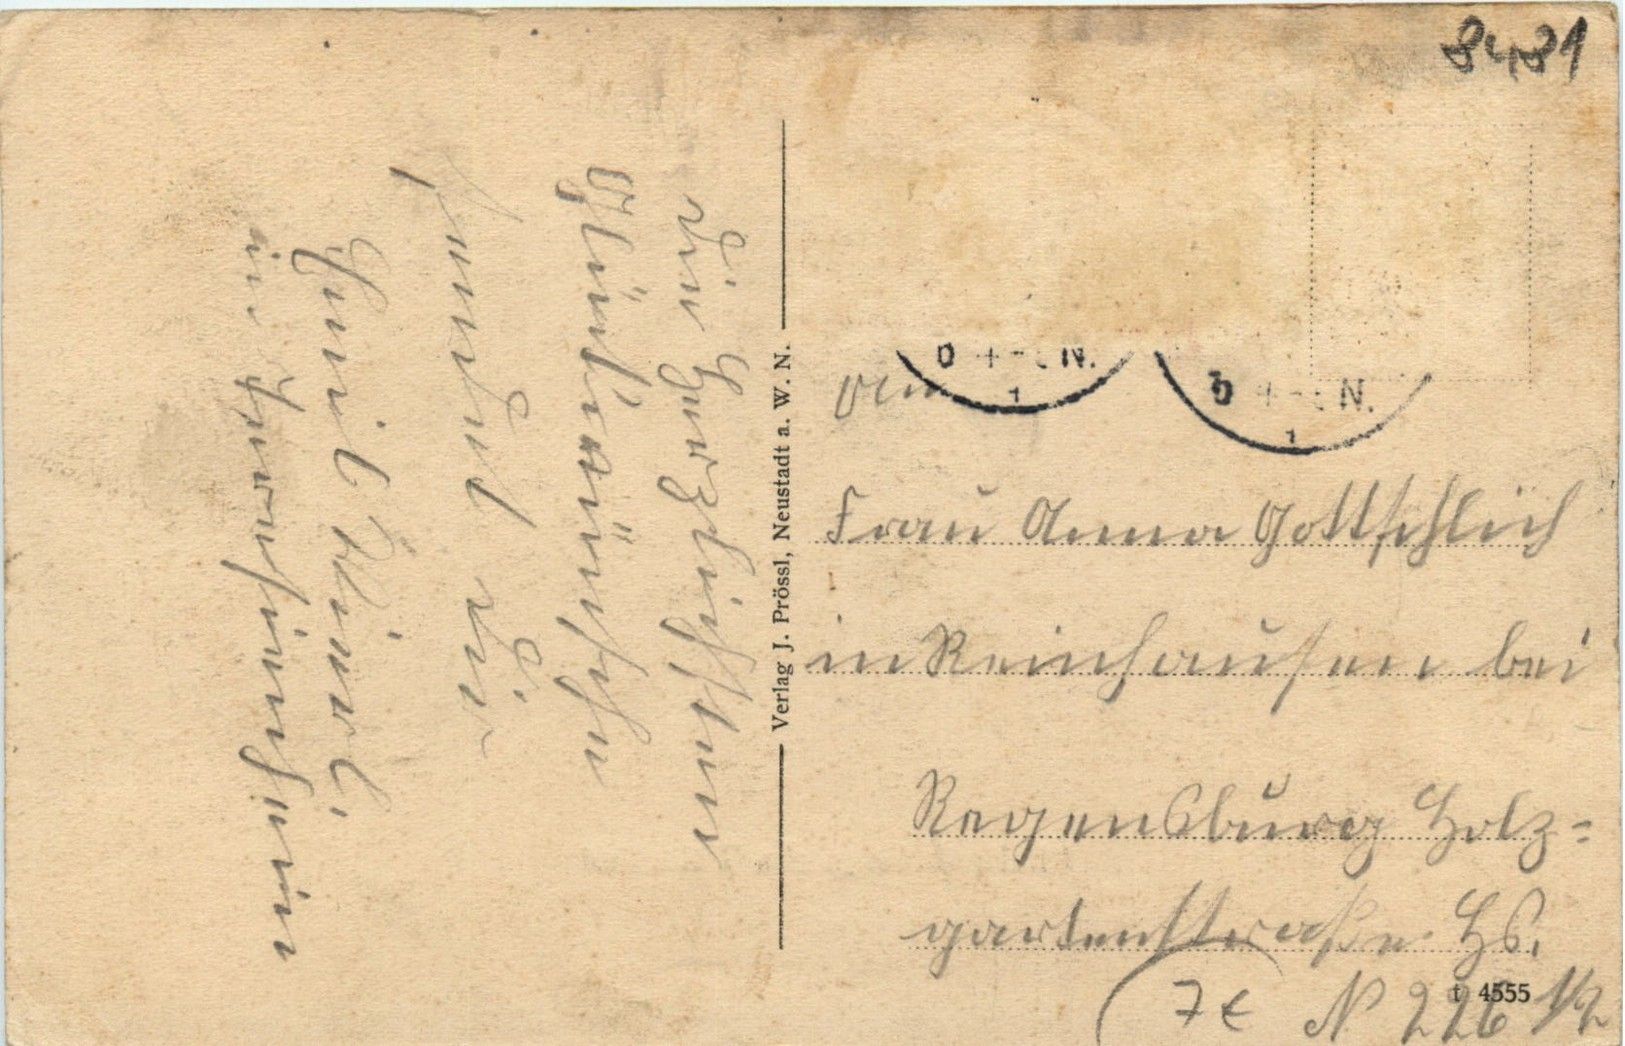 8481
Die Herzlichsten
Glückwünsche
sendet Dir
Familie
in
Verlag J. Prössl, Neustadt a. W. N.
N.
1
N.
1
An
Frau Anna Gottschlich
in Reinhausen bei
Regensburg Holz=
gartenstraße Hs.
N 226 1/2
7 €
t 4555